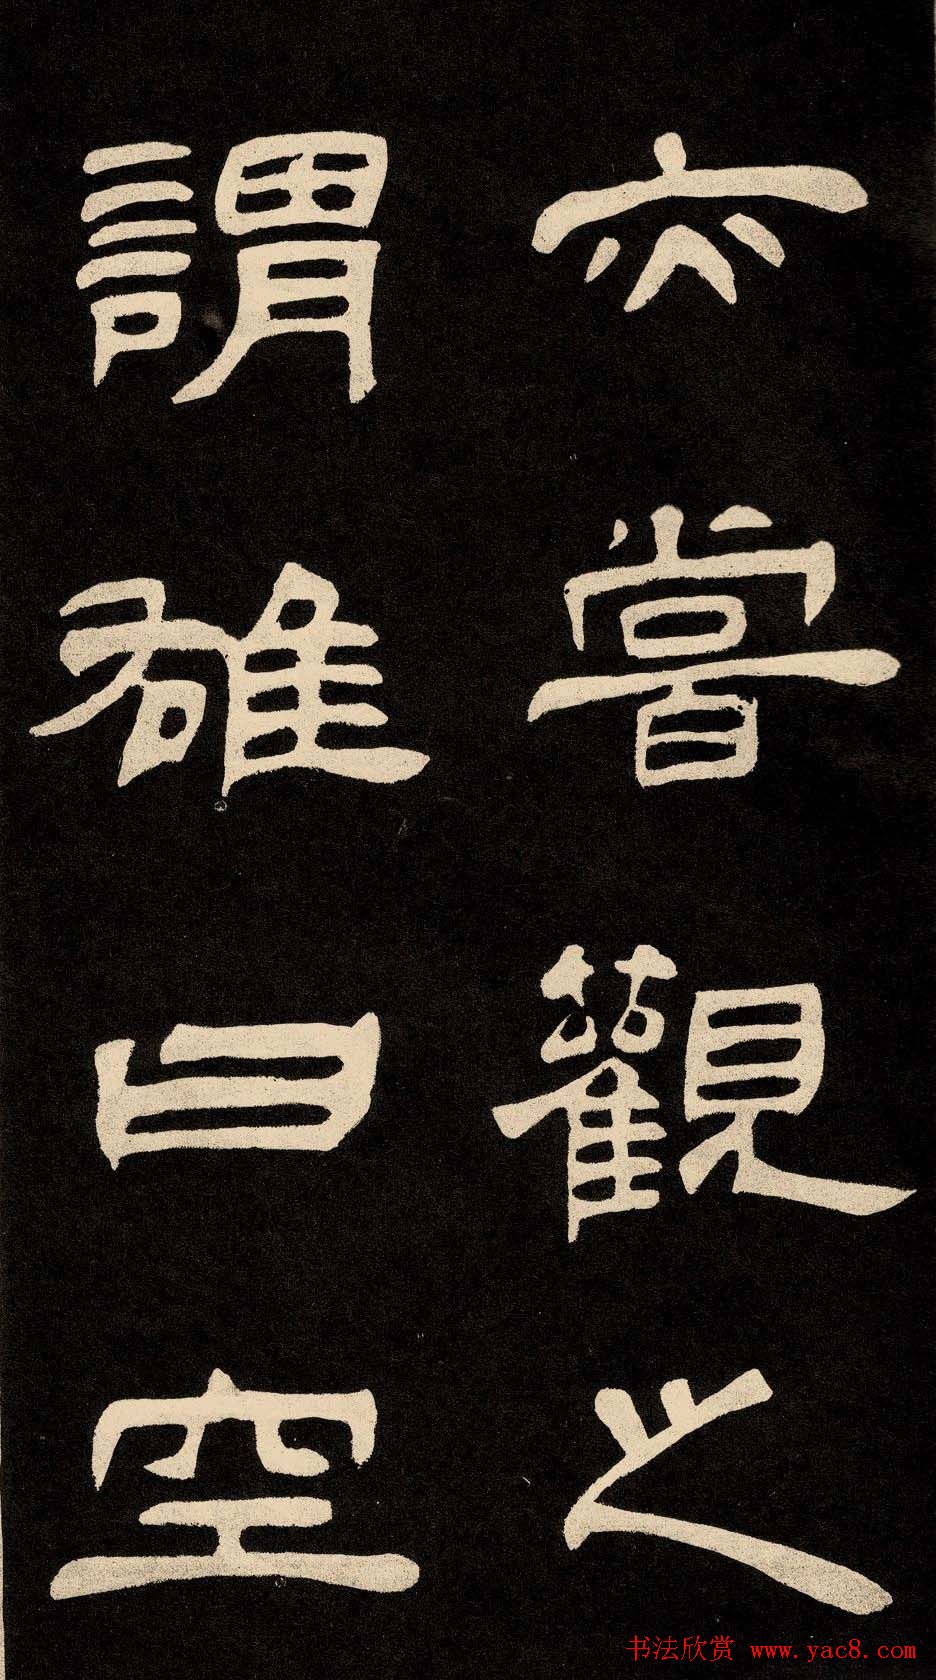 亦嘗觀之
謂雄曰空
书法欣赏 www.yac8.com